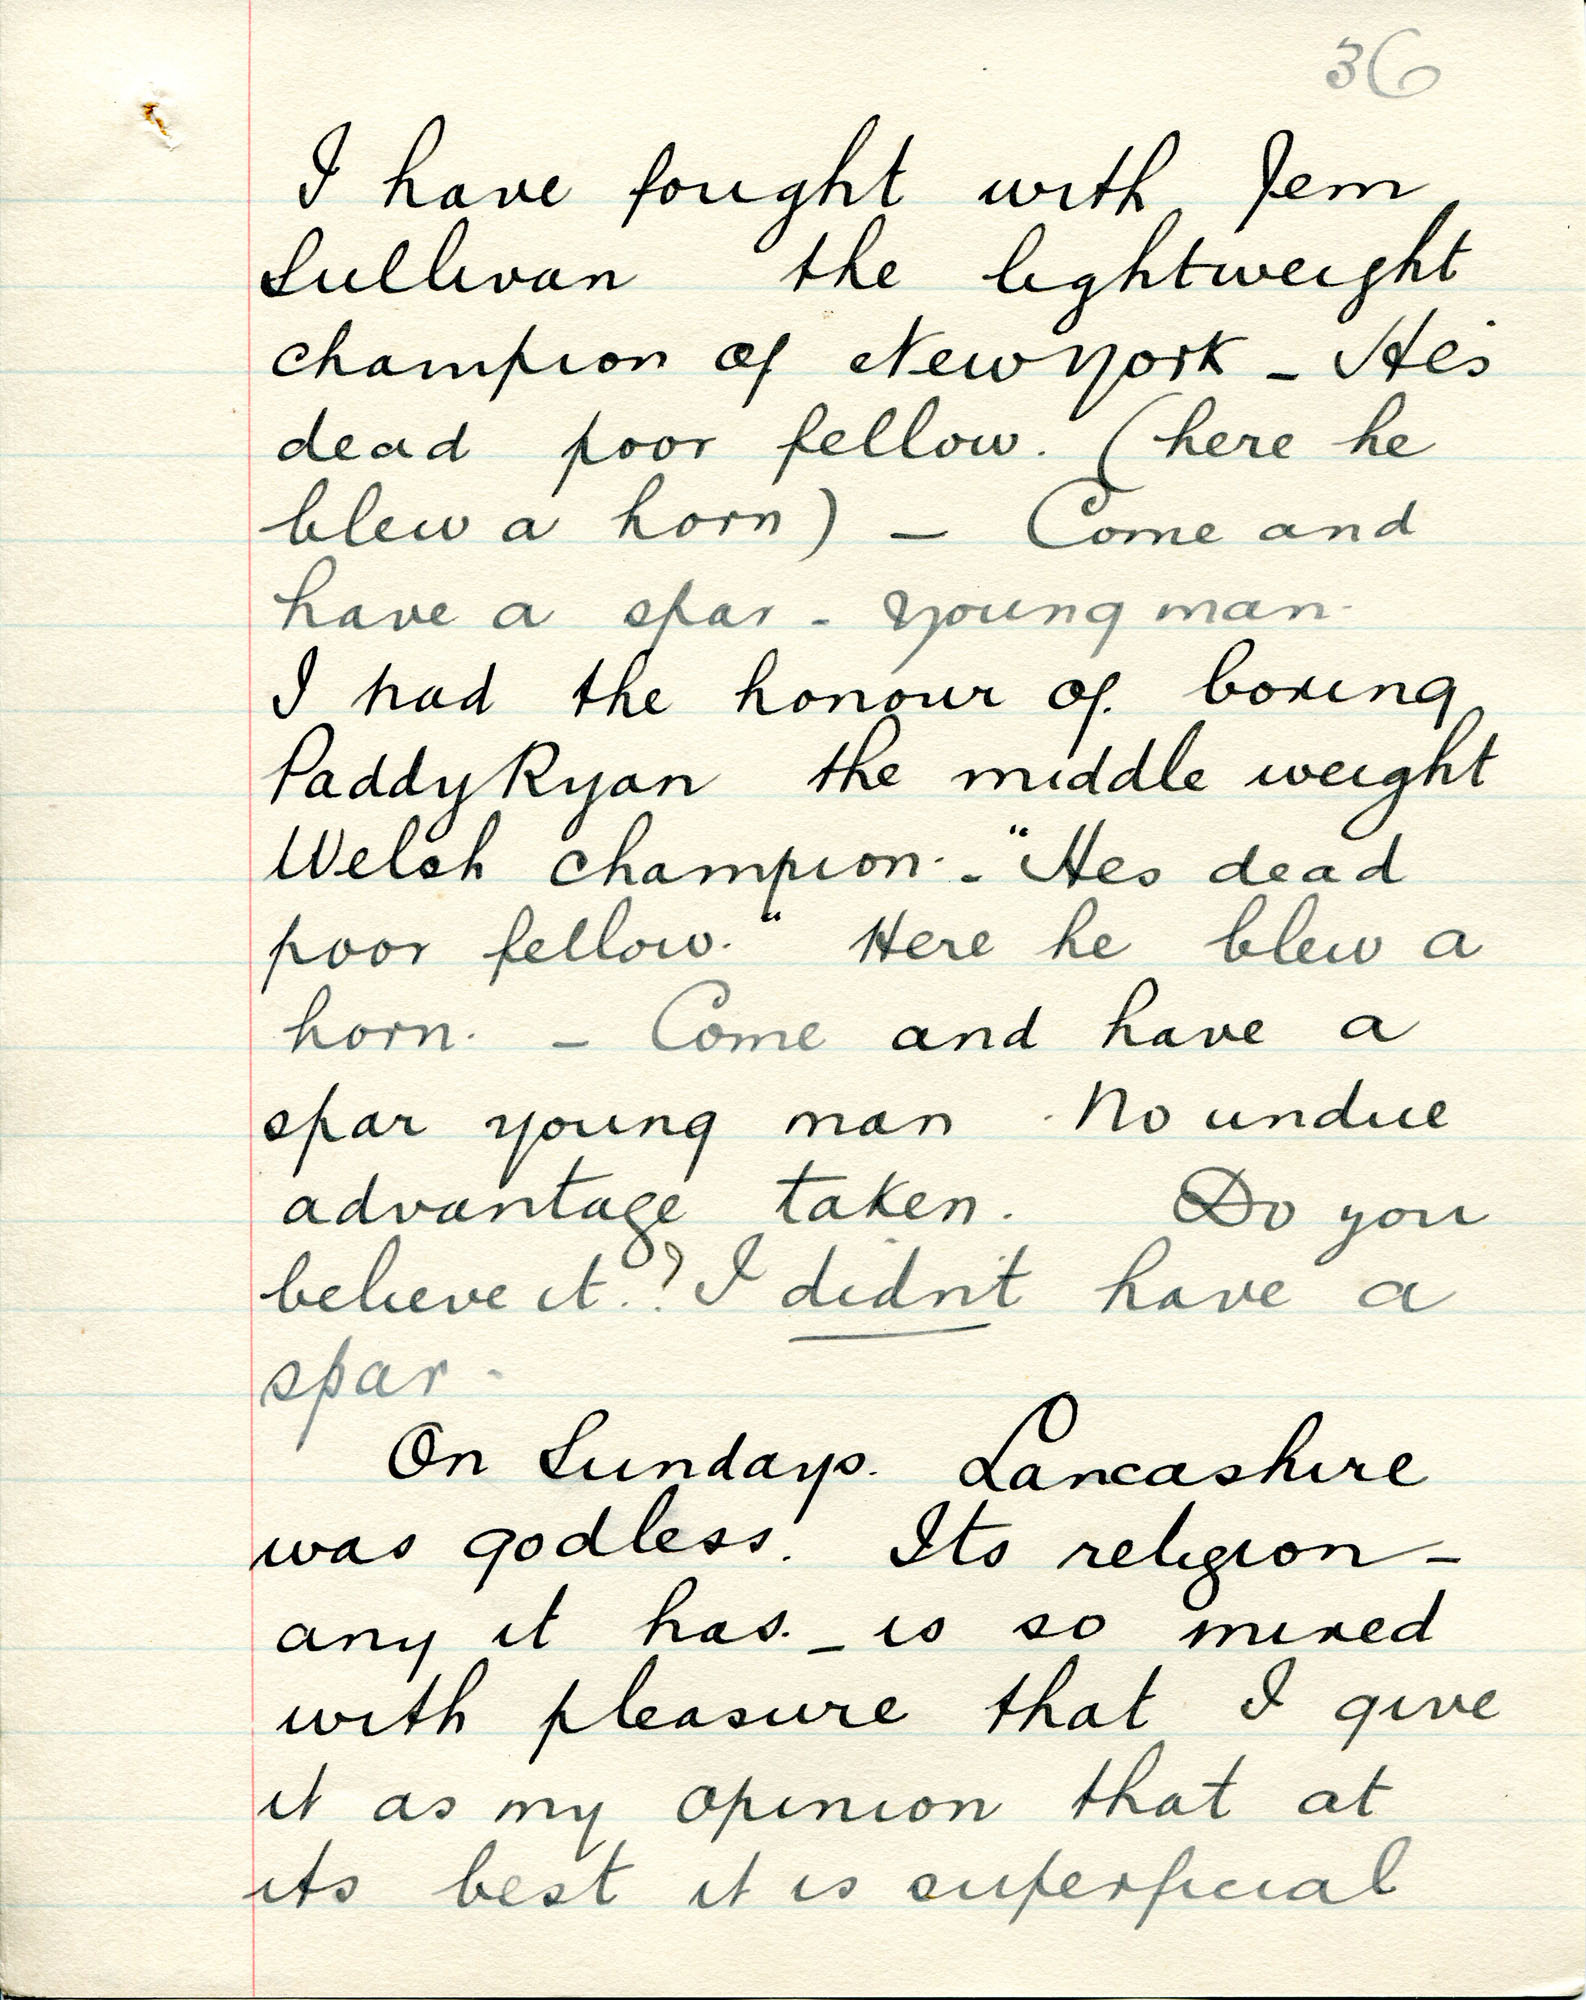 36
I have fought with Jem
Sullivan the lightweight
champion of New York - He's
dead poor fellow. (here he
blew a horn) - Come and
have a spar - young man.
I had the honour of boxing
Paddy Ryan the middle weight
Welsh champion. - "Hes dead
poor fellow." Here he blew a
horn. - Come and have a
spar young man. No undue
advantage taken. Do you
believe it.? I didn't have a
spar.
On Sundays. Lancashire
was godless. Its religion -
any it has. - is so mixed
with pleasure that I give
it as my opinion that at
its best it is superficial